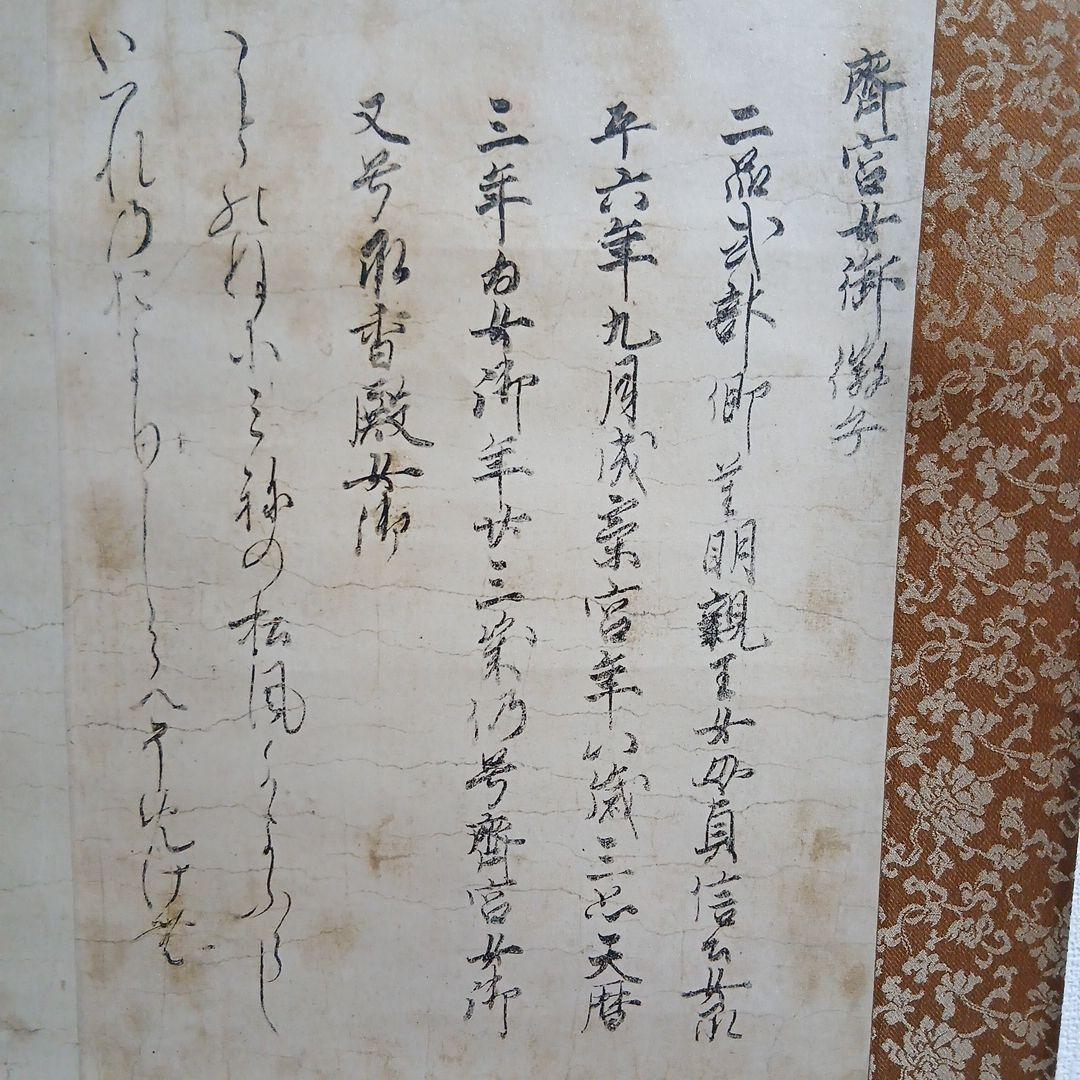 齋宮女御 徽子
二品式部卿重明親王女母貞信公女承
平六年九月成斎宮年八歳三品天暦
三年為女御年廿三歳仍号齋宮女御
又号承香殿女御
ことのねにみねの松風かよふらし
いつれのおよりしらへそめけむ